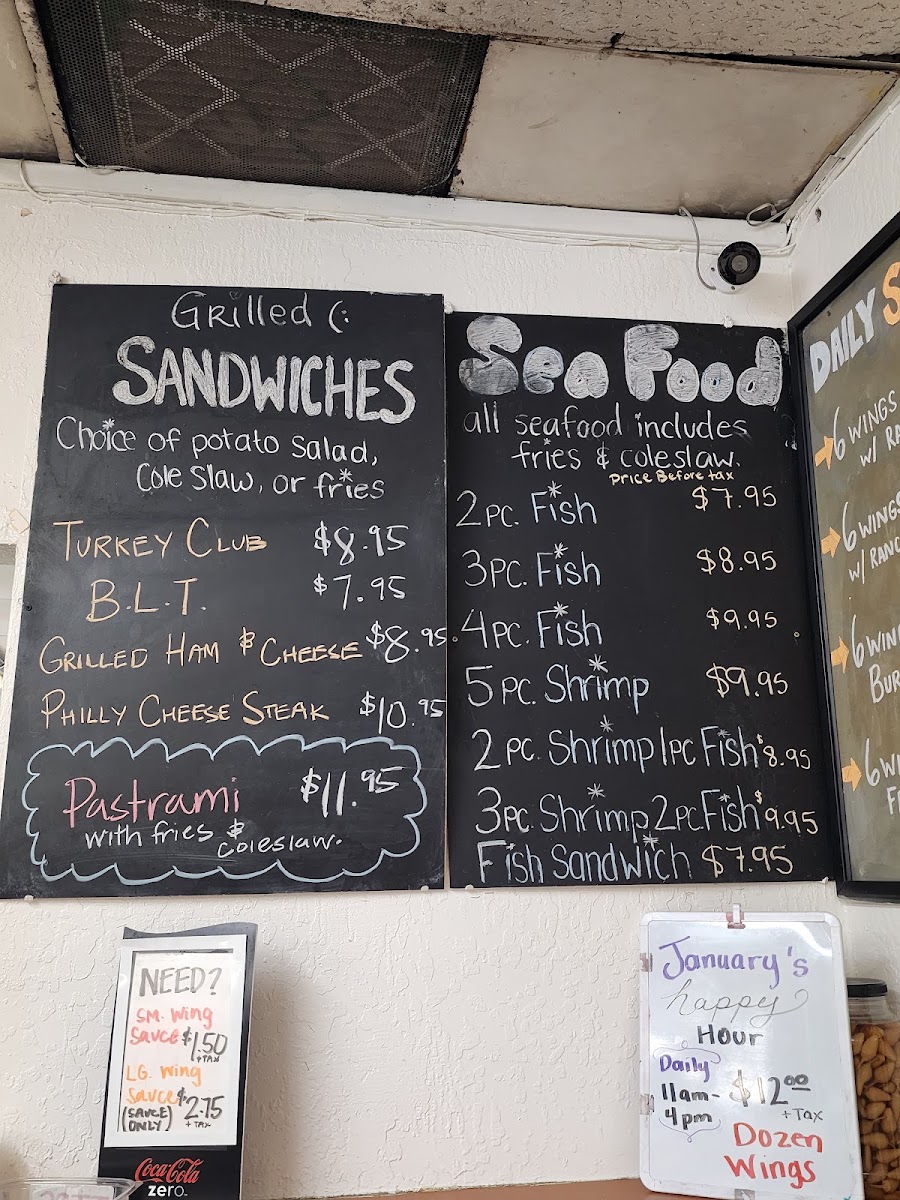 Grilled (:
SANDWICHES
Choice of potato salad,
Cole Slaw, or fries
TURKEY CLUB $8.95
B.L.T. $7.95
GRILLED HAM & CHEESE $8.95
PHILLY CHEESE STEAK $10.95
Pastrami $11.95
with fries &
coleslaw.
Sea Food
all seafood includes
fries & coleslaw.
Price Before tax
2 PC. Fish $7.95
3 PC. Fish $8.95
4 PC. Fish $9.95
5 PC. Shrimp $9.95
2 PC. Shrimp 1 PC Fish $8.95
3 PC. Shrimp 2 PC Fish $9.95
Fish Sandwich $7.95
DAILY
6 WINGS
w/
6 WINGS
w/
6
6
NEED?
SM. Wing
Sauce $1.50
+TAX
LG. Wing
Sauce $2.75
(SAUCE ONLY) +TAX
Coca-Cola
zero
January's
happy
Hour
Daily
11am-
4pm
$12.00
+Tax
Dozen
Wings